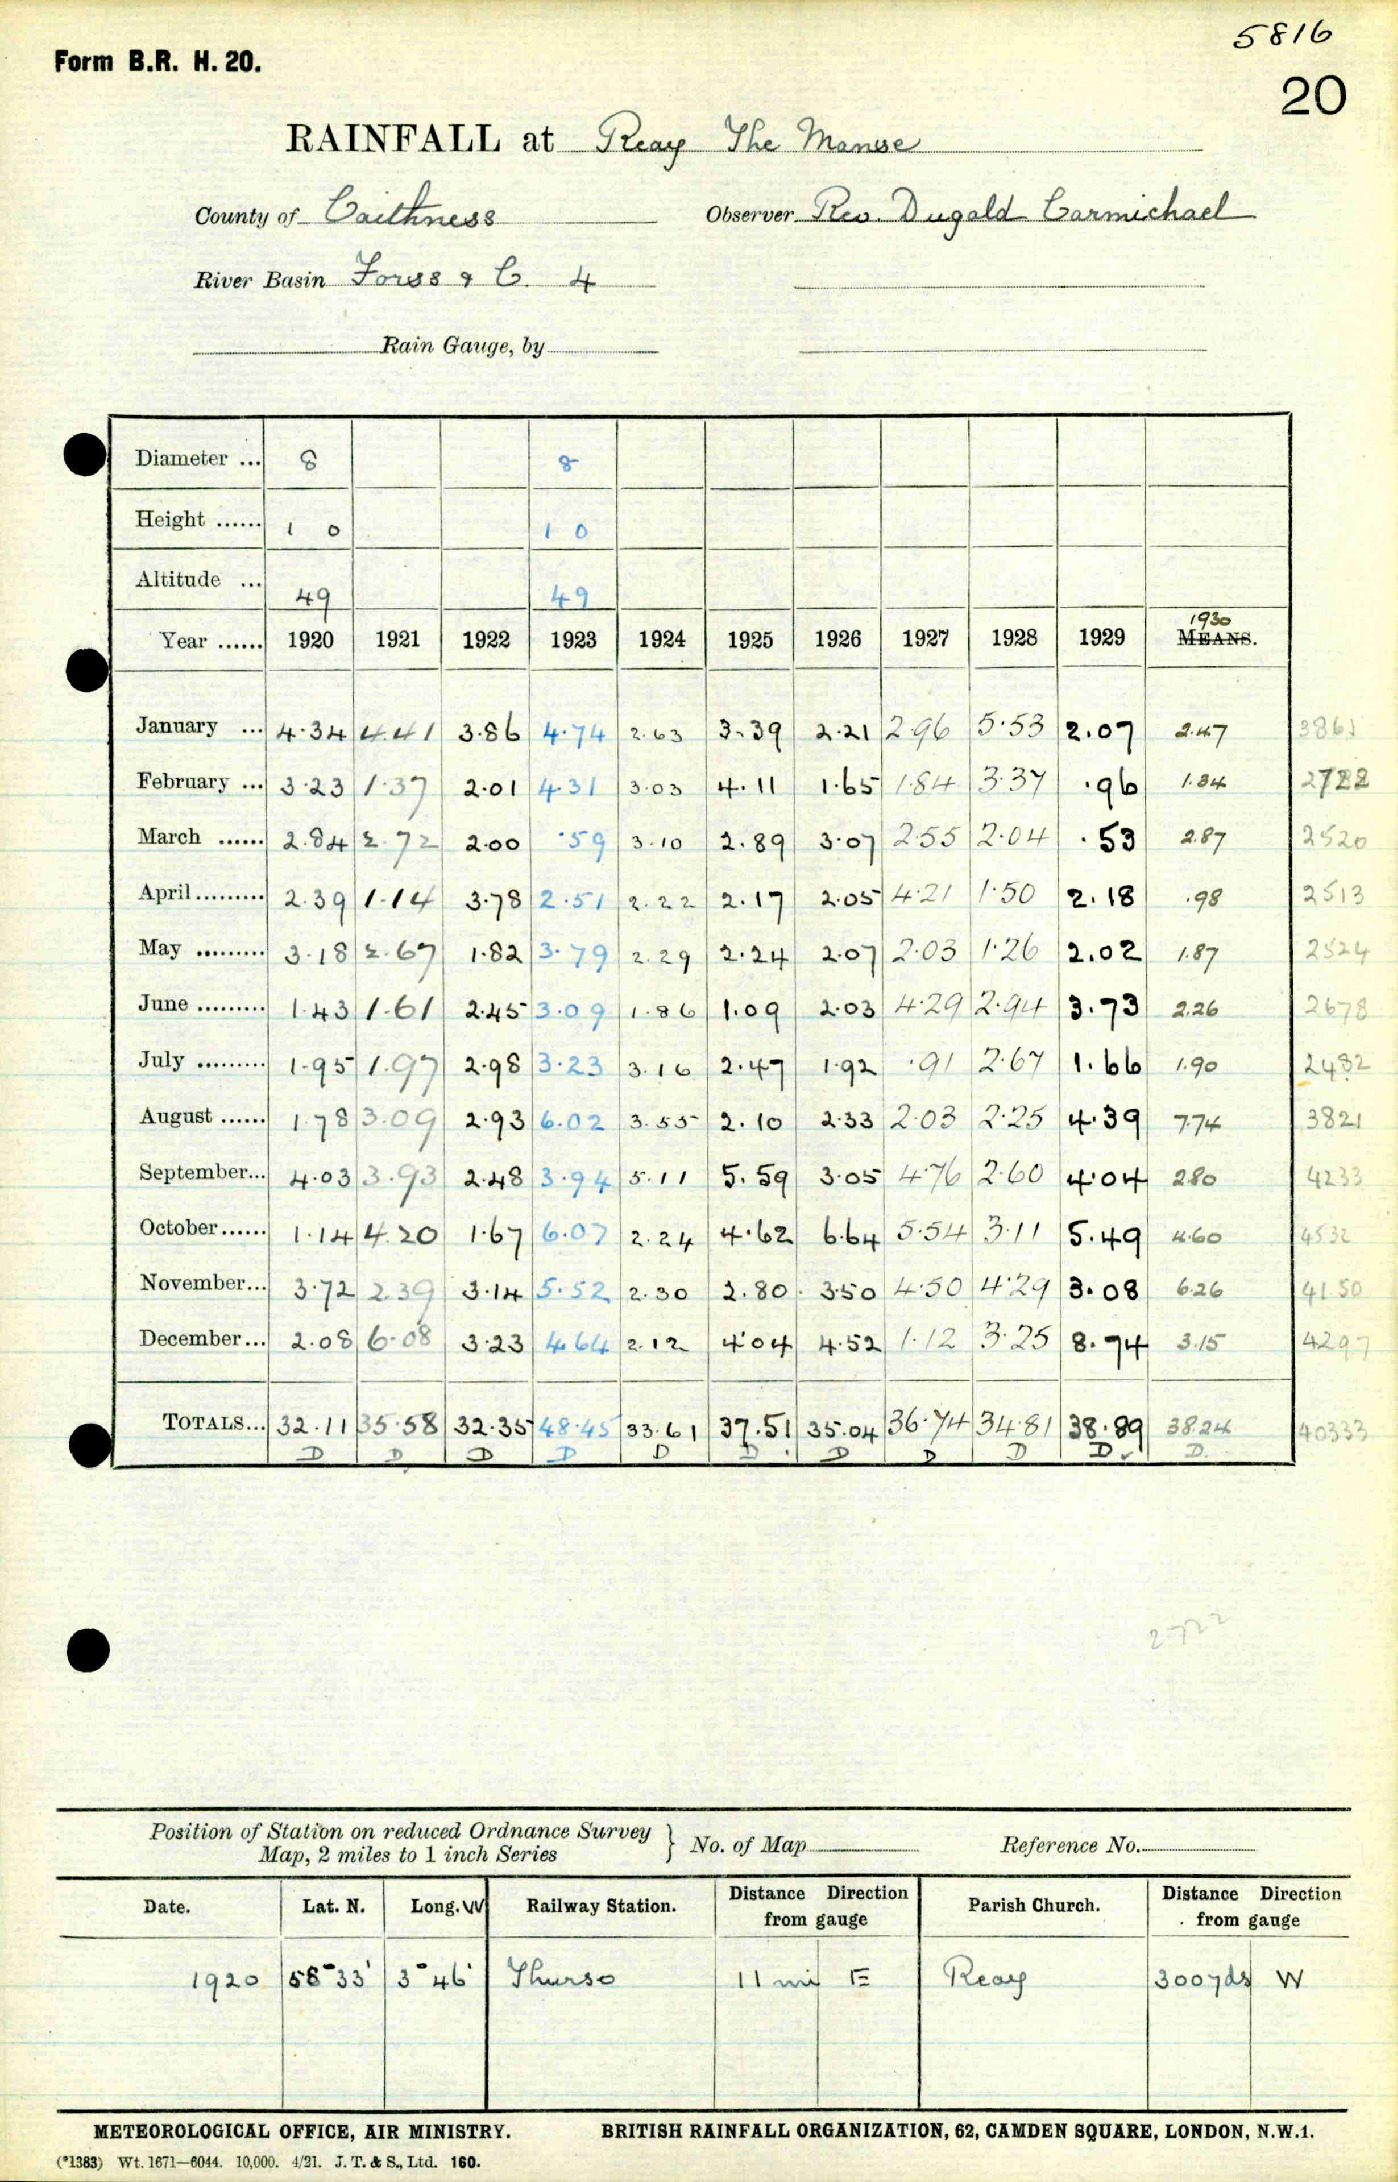 5816
Form B.R. H. 20.
20
RAINFALL at Reay The Manse
County of Caithness Observer Rev. Dugald Carmichael
River Basin Forss & C. 4
Rain Gauge, by
Diameter ... 8 8
Height ...... 1 0 1 0
Altitude ... 49 49
1930
Year ...... 1920 1921 1922 1923 1924 1925 1926 1927 1928 1929 MEANS.
January ... 4.34 4.41 3.86 4.74 2.63 3.39 2.21 2.96 5.53 2.07 2.47 3861
February ... 3.23 1.37 2.01 4.31 3.03 4.11 1.65 1.84 3.37 .96 1.34 2722
March ...... 2.84 2.72 2.00 .59 3.10 2.89 3.07 2.55 2.04 .53 2.87 2520
April ......... 2.39 1.14 3.78 2.51 2.22 2.17 2.05 4.21 1.50 2.18 .98 2513
May ......... 3.18 2.67 1.82 3.79 2.29 2.24 2.07 2.03 1.26 2.02 1.87 2524
June ......... 1.43 1.61 2.45 3.09 1.86 1.09 2.03 4.29 2.94 3.73 2.26 2678
July ......... 1.95 1.97 2.98 3.23 3.16 2.47 1.92 .91 2.67 1.66 1.90 2482
August ...... 1.78 3.09 2.93 6.02 3.55 2.10 2.33 2.03 2.25 4.39 7.74 3821
September... 4.03 3.93 2.48 3.94 5.11 5.59 3.05 4.76 2.60 4.04 2.80 4233
October...... 1.14 4.20 1.67 6.07 2.24 4.62 6.64 5.54 3.11 5.49 4.60 4532
November... 3.72 2.39 3.14 5.52 2.30 2.80 3.50 4.50 4.29 3.08 6.26 4150
December... 2.08 6.08 3.23 4.64 2.12 4.04 4.52 1.12 3.25 8.74 3.15 4297
TOTALS... 32.11 35.58 32.35 48.45 33.61 37.51 35.04 36.74 34.81 38.89 38.24 40333
D D D D D D D D D D D
2722
Position of Station on reduced Ordnance Survey
Map, 2 miles to 1 inch Series } No. of Map Reference No.
Date. Lat. N. Long. W Railway Station. Distance Direction from gauge Parish Church. Distance Direction from gauge
1920 58° 33' 3° 46' Thurso 11 mi E Reay 300yds W
METEOROLOGICAL OFFICE, AIR MINISTRY. BRITISH RAINFALL ORGANIZATION, 62, CAMDEN SQUARE, LONDON, N.W.1.
(*1383) Wt. 1671—6044. 10,000. 4/21. J. T. & S., Ltd. 160.